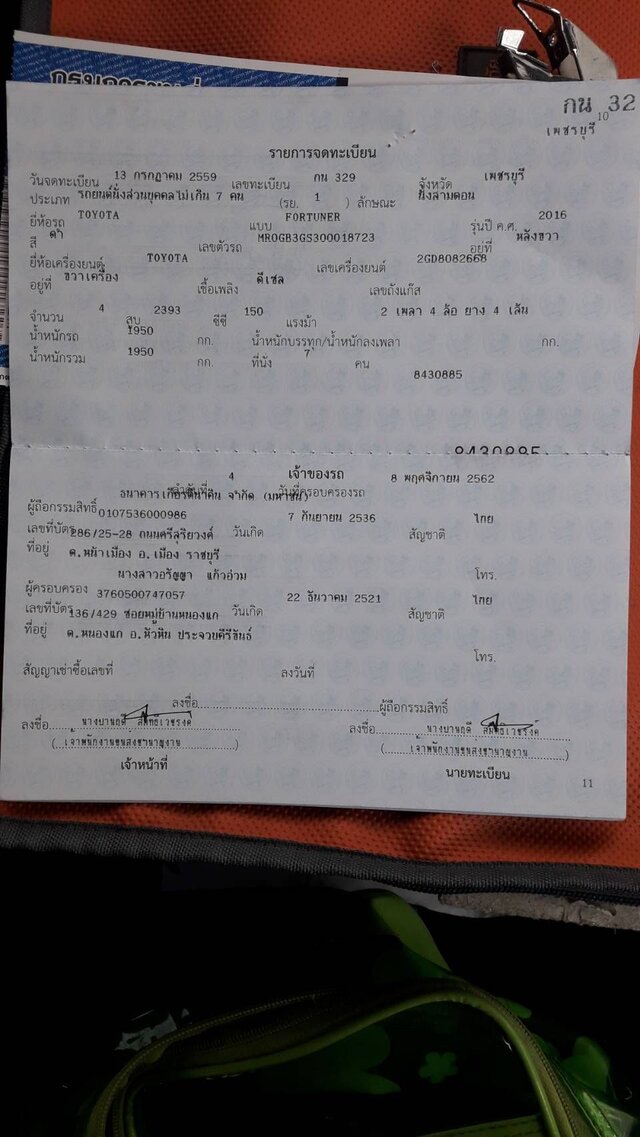 กน 32
10
เพชรบุรี
รายการจดทะเบียน
วันจดทะเบียน 13 กรกฎาคม 2559 เลขทะเบียน กน 329 จังหวัด เพชรบุรี
ประเภท รถยนต์นั่งส่วนบุคคลไม่เกิน 7 คน (รย. 1 ) ลักษณะ นั่งสามตอน
ยี่ห้อรถ TOYOTA แบบ FORTUNER รุ่นปี ค.ศ. 2016
สี ดำ เลขตัวรถ MR0GB3GS300018723 อยู่ที่ หลังขวา
ยี่ห้อเครื่องยนต์ TOYOTA เลขเครื่องยนต์ 2GD8082668
อยู่ที่ ขวาเครื่อง เชื้อเพลิง ดีเซล เลขถังแก๊ส
จำนวน 4 สูบ 2393 ซีซี 150 แรงม้า 2 เพลา 4 ล้อ ยาง 4 เส้น
น้ำหนักรถ 1950 กก. น้ำหนักบรรทุก/น้ำหนักลงเพลา กก.
น้ำหนักรวม 1950 กก. ที่นั่ง 7 คน
8430885
8430885
เจ้าของรถ
ลำดับที่ 4 วันที่ครอบครองรถ 8 พฤศจิกายน 2562
ผู้ถือกรรมสิทธิ์ ธนาคารเกียรตินาคิน จำกัด (มหาชน)
เลขที่บัตร 0107536000986 วันเกิด 7 กันยายน 2536 สัญชาติ ไทย
ที่อยู่ 286/25-28 ถนนศรีสุริยวงศ์
ต.หน้าเมือง อ.เมือง ราชบุรี
โทร.
ผู้ครอบครอง นางสาวอรัญญา แก้วอ่วม
เลขที่บัตร 3760500747057 วันเกิด 22 ธันวาคม 2521 สัญชาติ ไทย
ที่อยู่ 136/429 ซอยหมู่บ้านหนองแก
ต.หนองแก อ.หัวหิน ประจวบคีรีขันธ์
โทร.
สัญญาเช่าซื้อเลขที่ ลงวันที่
ลงชื่อ ผู้ถือกรรมสิทธิ์
ลงชื่อ ลงชื่อ
(เจ้าพนักงานขนส่งชำนาญงาน) (เจ้าพนักงานขนส่งชำนาญงาน)
เจ้าหน้าที่ นายทะเบียน
11